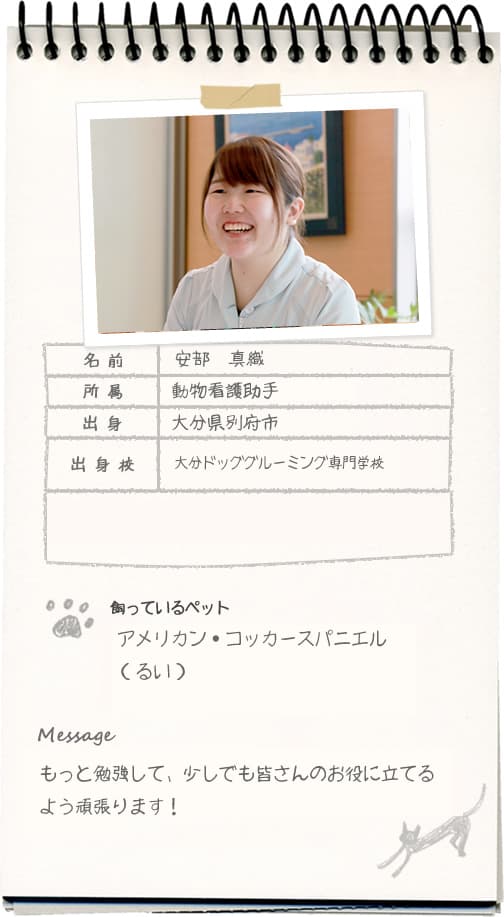 名前 安部 真織
所属 動物看護助手
出身 大分県別府市
出身校 大分ドッググルーミング専門学校
飼っているペット
アメリカン・コッカースパニエル
(るい)
Message
もっと勉強して、少しでも皆さんのお役に立てる
よう頑張ります!